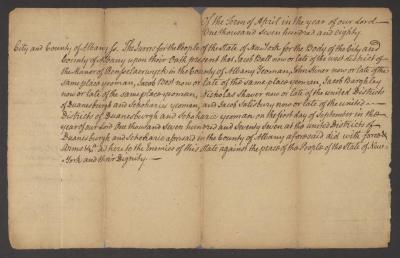 Of the Term of April in the year of our Lord
One thousand seven hundred and eighty.
City and County of Albany ss. The Jurors for the People of the State of New York for the Body of the City and
County of Albany upon their Oath present that Jacob Ball now or late of the west district of
the Manor of Rensselaerwyck in the County of Albany Yeoman, John now or late of the
same place yeoman, Jacob Best now or late of the same place yeoman, Jacob
now or late of the same place yeoman, Nicholas Shaver now or late of the united Districts
of Duanesburgh and Schoharie yeoman, and Jacob Salisbury now or late of the united
Districts of Duanesburgh and Schoharie yeoman on the first day of September in the
year of our Lord One thousand Seven hundred and Seventy Seven at the united Districts of
Duanesburgh and Schoharie aforesaid in the County of Albany aforesaid did with force &
Arms &c. adhere to the Enemies of this State against the peace of the People of the State of New
York and their Dignity.